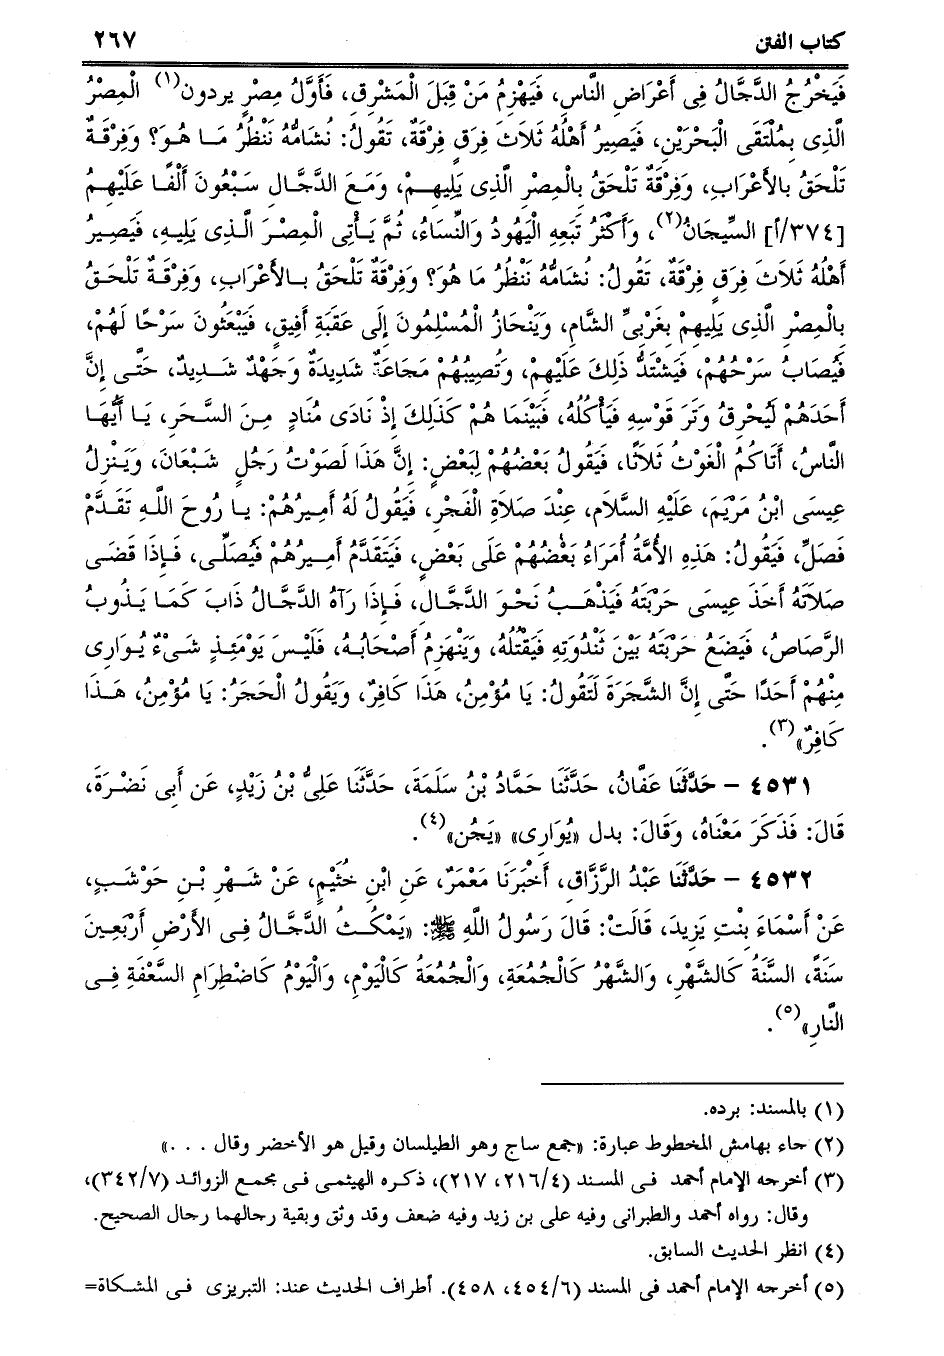 كتاب الفتن ٢٦٧
فَيَخْرُجُ الدَّجَّالُ فِى أَعْرَاضِ النَّاسِ، فَيَهْزِمُ مَنْ قِبَلَ الْمَشْرِقِ، فَأَوَّلُ مِصْرٍ يردون(١) الْمِصْرُ
الَّذِى بِمُلْتَقَى الْبَحْرَيْنِ، فَيَصِيرُ أَهْلُهُ ثَلاَثَ فِرَقٍ فِرْقَةٌ، تَقُولُ: نُشَامُّهُ نَنْظُرُ مَا هُوَ؟ وَفِرْقَةٌ
تَلْحَقُ بالأَعْرَابِ، وَفِرْقَةٌ تَلْحَقُ بِالْمِصْرِ الَّذِى يَلِيهِمْ، وَمَعَ الدَّجَّالِ سَبْعُونَ أَلْفًا عَلَيْهِمُ
[٣٧٤/أ] السِّيجَانُ(٢)، وَأَكْثَرُ تَبَعِهِ الْيَهُودُ وَالنِّسَاءُ، ثُمَّ يَأْتِى الْمِصْرَ الَّذِى يَلِيهِ، فَيَصِيرُ
أَهْلُهُ ثَلاَثَ فِرَقٍ فِرْقَةٌ، تَقُولُ: نُشَامُّهُ نَنْظُرُ مَا هُوَ؟ وَفِرْقَةٌ تَلْحَقُ بالأَعْرَابِ، وَفِرْقَةٌ تَلْحَقُ
بِالْمِصْرِ الَّذِى يَلِيهِمْ بِغَرْبِىِّ الشَّامِ، وَيَنْحَازُ الْمُسْلِمُونَ إِلَى عَقَبَةِ أَفِيقٍ، فَيَبْعَثُونَ سَرْحًا لَهُمْ،
فَيُصَابُ سَرْحُهُمْ، فَيَشْتَدُّ ذَلِكَ عَلَيْهِمْ، وَتُصِيبُهُمْ مَجَاعَةٌ شَدِيدَةٌ وَجَهْدٌ شَدِيدٌ، حَتَّى إِنَّ
أَحَدَهُمْ لَيُحْرِقُ وَتَرَ قَوْسِهِ فَيَأْكُلُهُ، فَبَيْنَمَا هُمْ كَذَلِكَ إِذْ نَادَى مُنَادٍ مِنَ السَّحَرِ، يَا أَيُّهَا
النَّاسُ، أَتَاكُمُ الْغَوْثُ ثَلاَثًا، فَيَقُولُ بَعْضُهُمْ لِبَعْضٍ: إِنَّ هَذَا لَصَوْتُ رَجُلٍ شَبْعَانَ، وَيَنْزِلُ
عِيسَى ابْنُ مَرْيَمَ، عَلَيْهِ السَّلاَم، عِنْدَ صَلاَةِ الْفَجْرِ، فَيَقُولُ لَهُ أَمِيرُهُمْ: يَا رُوحَ اللَّهِ تَقَدَّمْ
فَصَلِّ، فَيَقُولُ: هَذِهِ الأُمَّةُ أُمَرَاءُ بَعْضُهُمْ عَلَى بَعْضٍ، فَيَتَقَدَّمُ أَمِيرُهُمْ فَيُصَلِّى، فَإِذَا قَضَى
صَلاَتَهُ أَخَذَ عِيسَى حَرْبَتَهُ فَيَذْهَبُ نَحْوَ الدَّجَّالِ، فَإِذَا رَآهُ الدَّجَّالُ ذَابَ كَمَا يَذُوبُ
الرَّصَاصُ، فَيَضَعُ حَرْبَتَهُ بَيْنَ ثَنْدُوَتِهِ فَيَقْتُلُهُ، وَيَنْهَزِمُ أَصْحَابُهُ، فَلَيْسَ يَوْمَئِذٍ شَىْءٌ يُوَارِى
مِنْهُمْ أَحَدًا حَتَّى إِنَّ الشَّجَرَةَ لَتَقُولُ: يَا مُؤْمِنُ، هَذَا كَافِرٌ، وَيَقُولُ الْحَجَرُ: يَا مُؤْمِنُ، هَذَا
كَافِرٌ»(٣).
٤٥٣١ – حَدَّثَنَا عَفَّانُ، حَدَّثَنَا حَمَّادُ بْنُ سَلَمَةَ، حَدَّثَنَا عَلِىُّ بْنُ زَيْدٍ، عَن أَبِى نَضْرَةَ،
قَالَ: فَذَكَرَ مَعْنَاهُ، وَقَالَ: بدل «يُوَارِى» «يَجُن»(٤).
٤٥٣٢ – حَدَّثَنَا عَبْدُ الرَّزَّاقِ، أَخْبَرَنَا مَعْمَرٌ، عَنِ ابْنِ خُثَيْمٍ، عَنْ شَهْرِ بْنِ حَوْشَبٍ،
عَنْ أَسْمَاءَ بِنْتِ يَزِيدَ، قَالَتْ: قَالَ رَسُولُ اللَّهِ ﷺ: «يَمْكُثُ الدَّجَّالُ فِى الأَرْضِ أَرْبَعِينَ
سَنَةً، السَّنَةُ كَالشَّهْرِ، وَالشَّهْرُ كَالْجُمُعَةِ، وَالْجُمُعَةُ كَالْيَوْمِ، وَالْيَوْمُ كَاضْطِرَامِ السَّعْفَةِ فِى
النَّارِ»(٥).
(١) بالمسند: يرده.
(٢) جاء بهامش المخطوط عبارة: «جمع ساج وهو الطيلسان وقيل هو الأخضر وقال . . .»
(٣) أخرجه الإمام أحمد فى المسند (٢١٦/٤، ٢١٧)، ذكره الهيثمى فى مجمع الزوائد (٣٤٢/٧)،
وقال: رواه أحمد والطبرانى وفيه على بن زيد وفيه ضعف وقد وثق وبقية رجالهما رجال الصحيح.
(٤) انظر الحديث السابق.
(٥) أخرجه الإمام أحمد فى المسند (٤٥٤/٦، ٤٥٨). أطراف الحديث عند: التبريزى فى المشكاة=